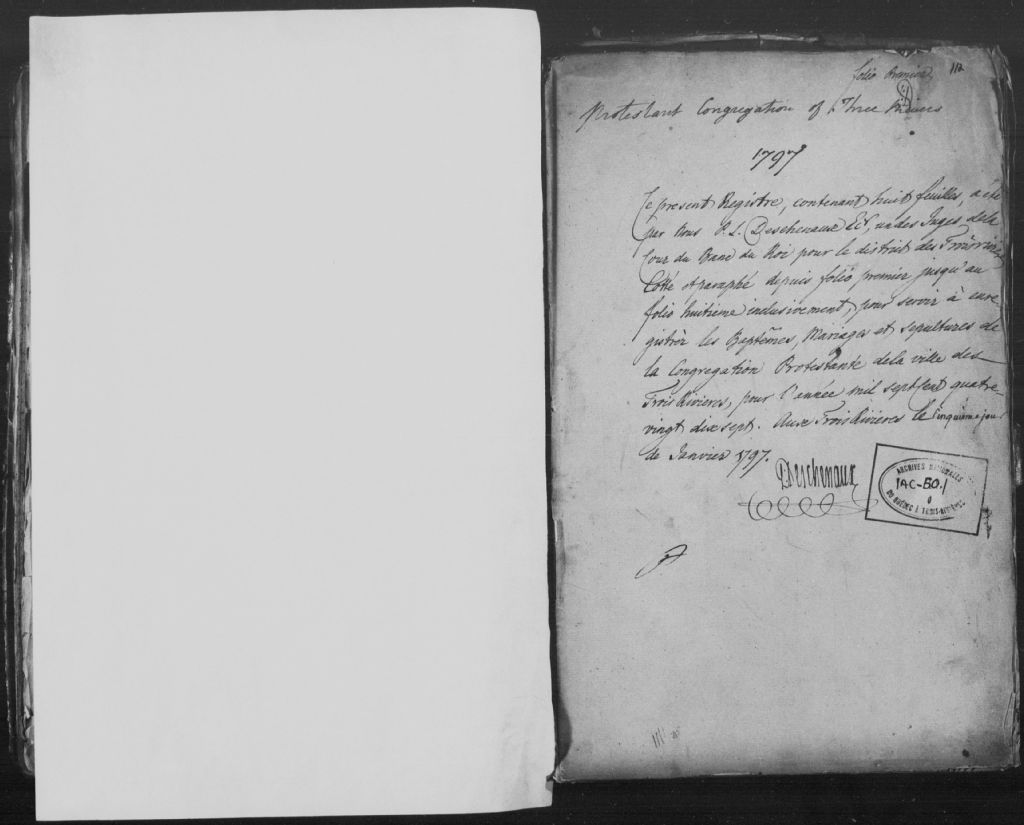 folio Premier 112
Protestant Congregation of Three Rivers
1797
Le present Registre, contenant huit feuilles, a été
par Nous P. L. Deschenaux Ecr, un des Juges de la
Cour du Banc du Roi pour le district des Trois Rivi
Cotté et paraphé depuis folio premier jusqu'au
folio huitième inclusivement, pour servir à enre-
gistrèr les Baptêmes, Mariages et sepultures de
la Congregation Protestante de la ville des
Trois Rivieres, pour l'année mil sept Cent quatre-
vingt dix sept. Aux Trois Rivieres le Cinquième jour
de Janvier 1797.
P.L. Deschenaux
ARCHIVES NATIONALES
1AC-50.1
DU QUÉBEC À TROIS-RIVIÈRES